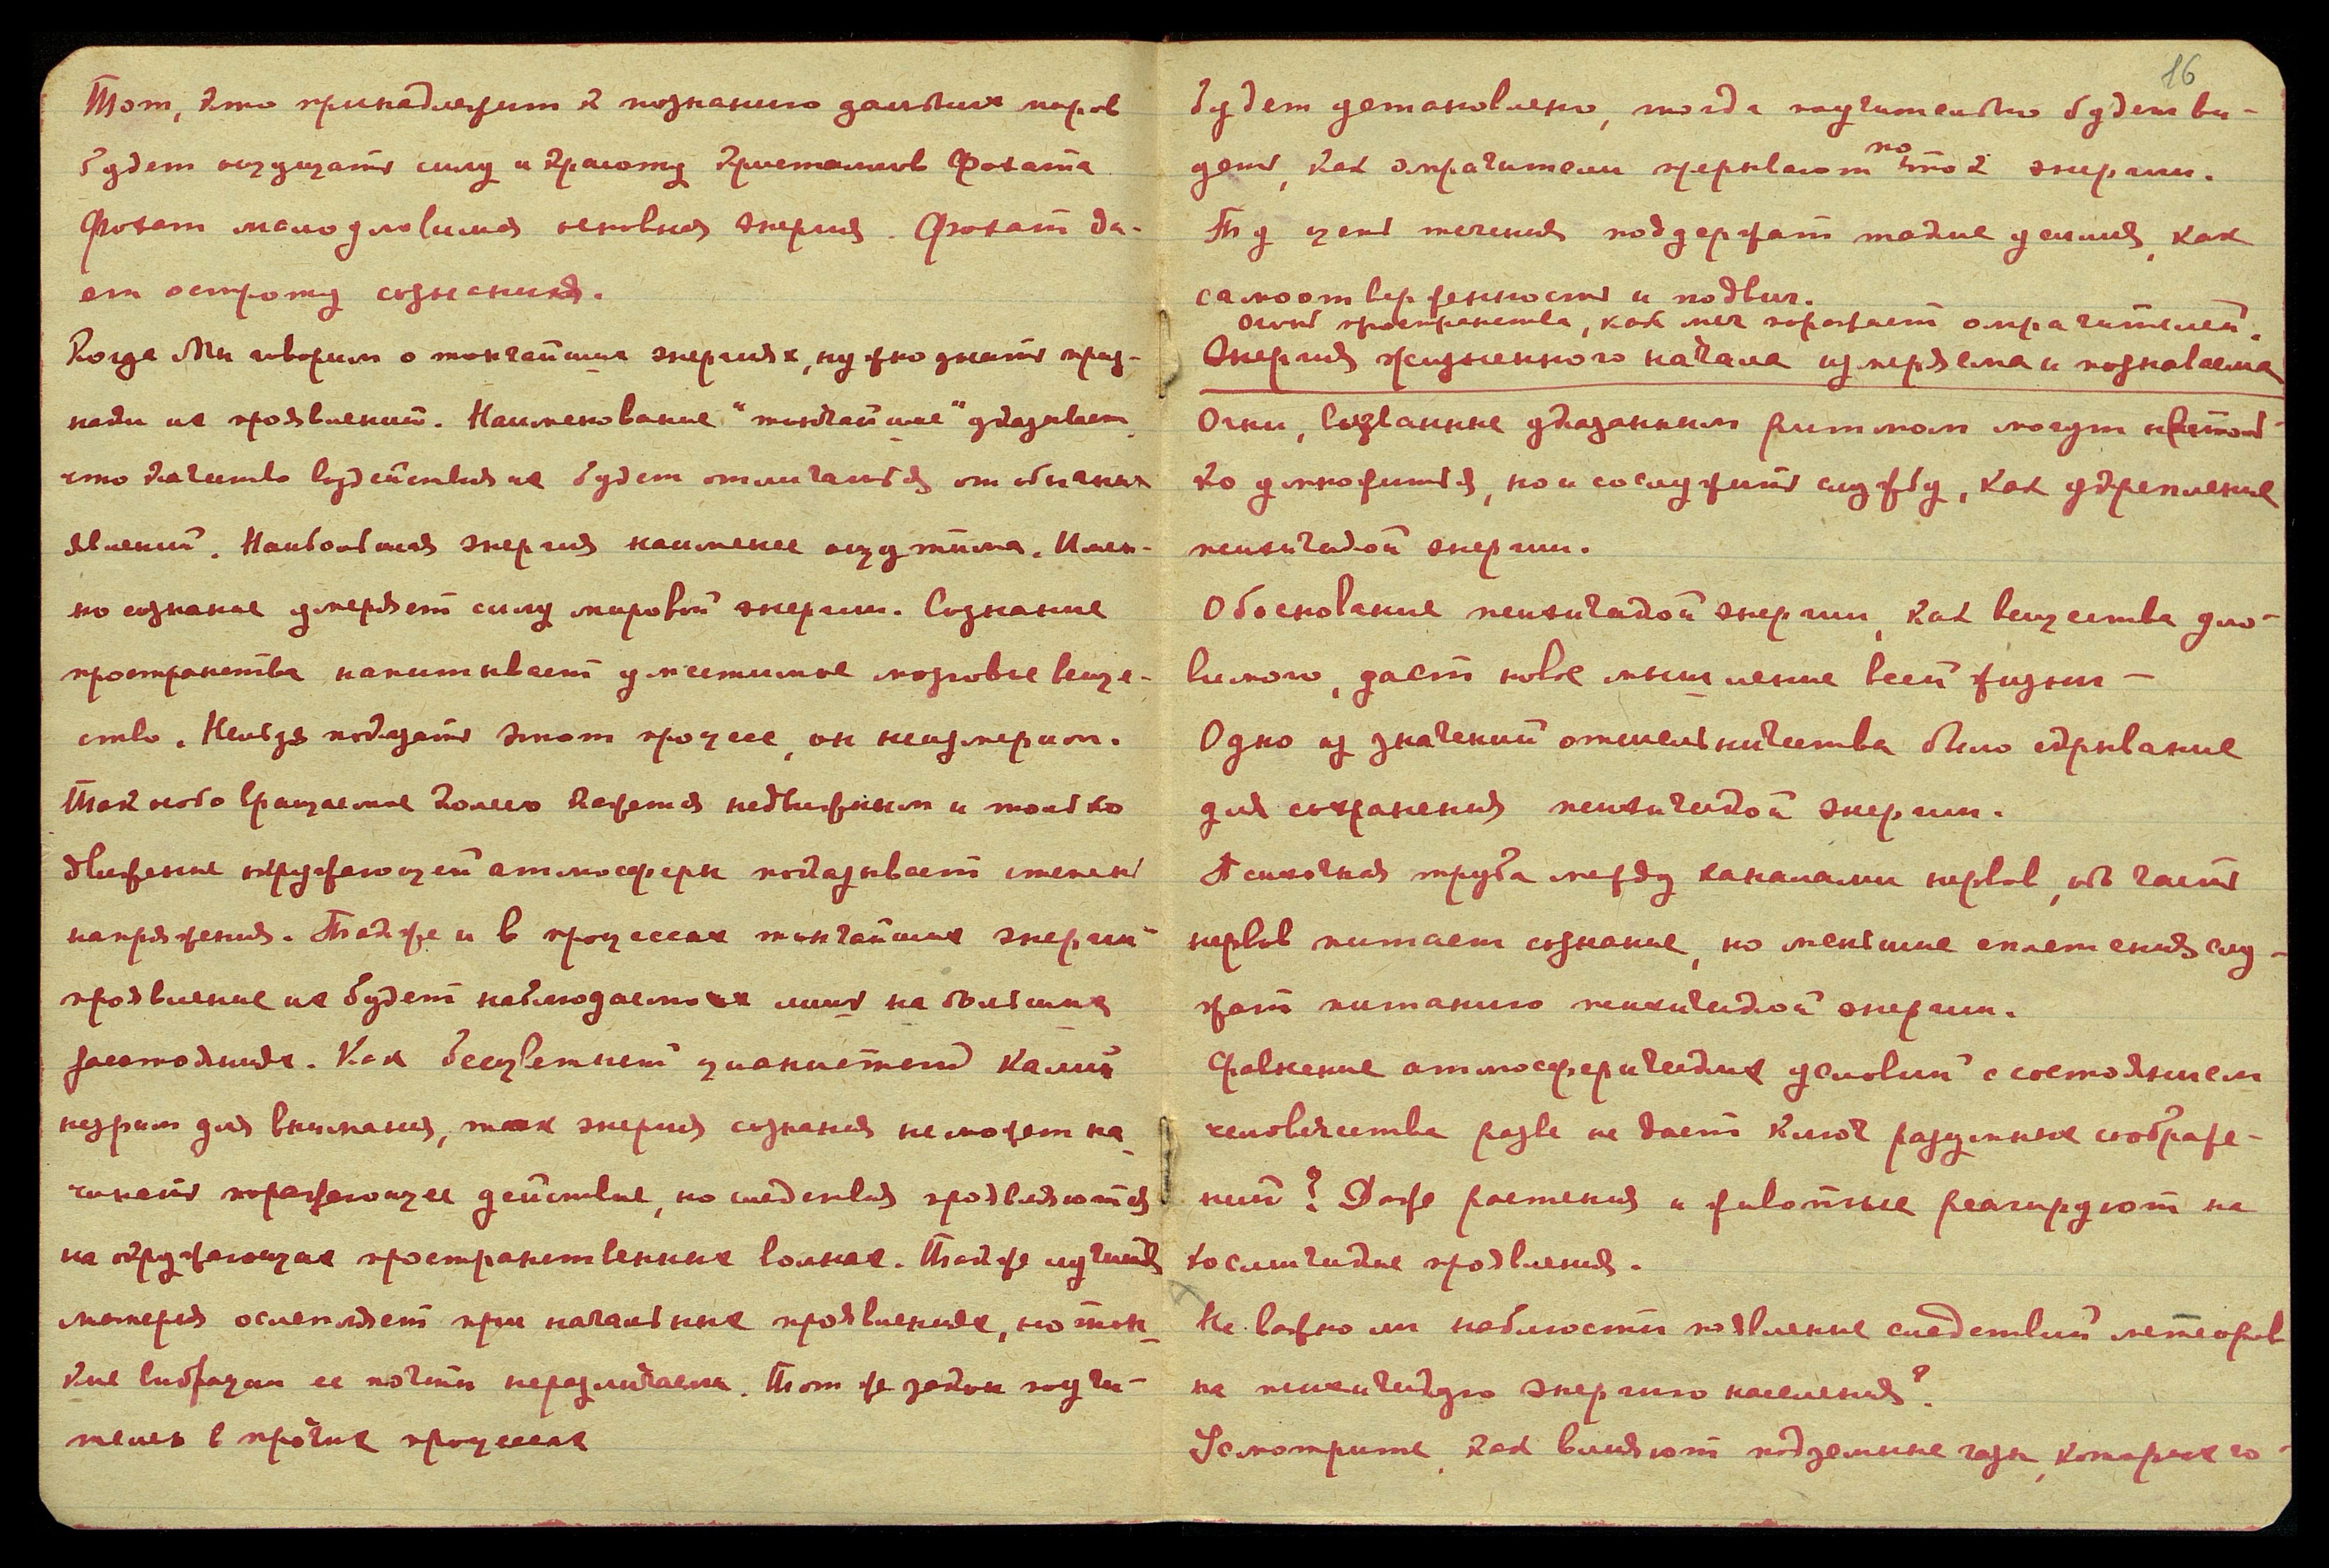 Тот, кто принадлежит к познанию дальних миров
будет ощущать силу и красоту кристаллов Фохата
Фохат мало уловимая основная энергия. Фохат да-
ет остроту сознания.
Когда Мы говорим о тончайших энергиях, нужно знать приз-
наки их проявлений. Наименование "тончайшие" указывает,
что качество воздействия их будет отличаться от обычных
явлений. Наибольшая энергия наименее ощутима. Имен-
но сознание умеряет силу мировой энергии. Сознание
пространства напитывает уместимое мозговые веще-
ство. Нельзя подгонять этот процесс, он неизмерим.
Так особо вращаемое колесо кажется недвижным и только
движение окружающей атмосферы показывает степень
напряжения. Также и в процессах тончайших энергий
проявление их будет наблюдаемо лишь на больших
расстояниях. Как бесцветный цианистый калий
незрим для внимания, так энергия сознания не может на
чинать поражающее действие, но следствия проявляются
на окружающих пространственных волнах. Также лучшая
материя ослепляет при начальных проявлениях, но тон-
кие вибрации ее почти неразличаемы. Тот же закон поучи-
телен в прочих процессах
16
будет установлено, тогда поучительно будет ви-
деть, как омрачители прерывают по ток энергии.
Ту цепь течения поддержат такие усилия, как
самоотверженность и подвиг.
Огонь пространства, как меч поражает омрачителей.
Энергия жизненного начала измеряема и познаваема
Огни, вызванные указанным ритмом могут не толь-
ко умножиться, но и сослужить службу, как укрепление
психической энергии.
Обоснование психической энергии, как вещества уло-
вимого, даст новое мышление всей жизни –
Одно из значений отшельничества было скрывание
для сохранения психической энергии.
Психочная труба между каналами нервов, об часть
нервов питает сознание, но меньшие сплетения слу-
жат питанию психической энергии.
Сравнение атмосферических условий с состоянием
человечества разве не дает ключ разумных соображе-
ний? Даже растения и животные реагируют на
космические проявления.
Не важно ли наблюсти появление следствий метеоров
на психическую энергию населения?
Усмотрите, как влияют подземные газы, которых го-